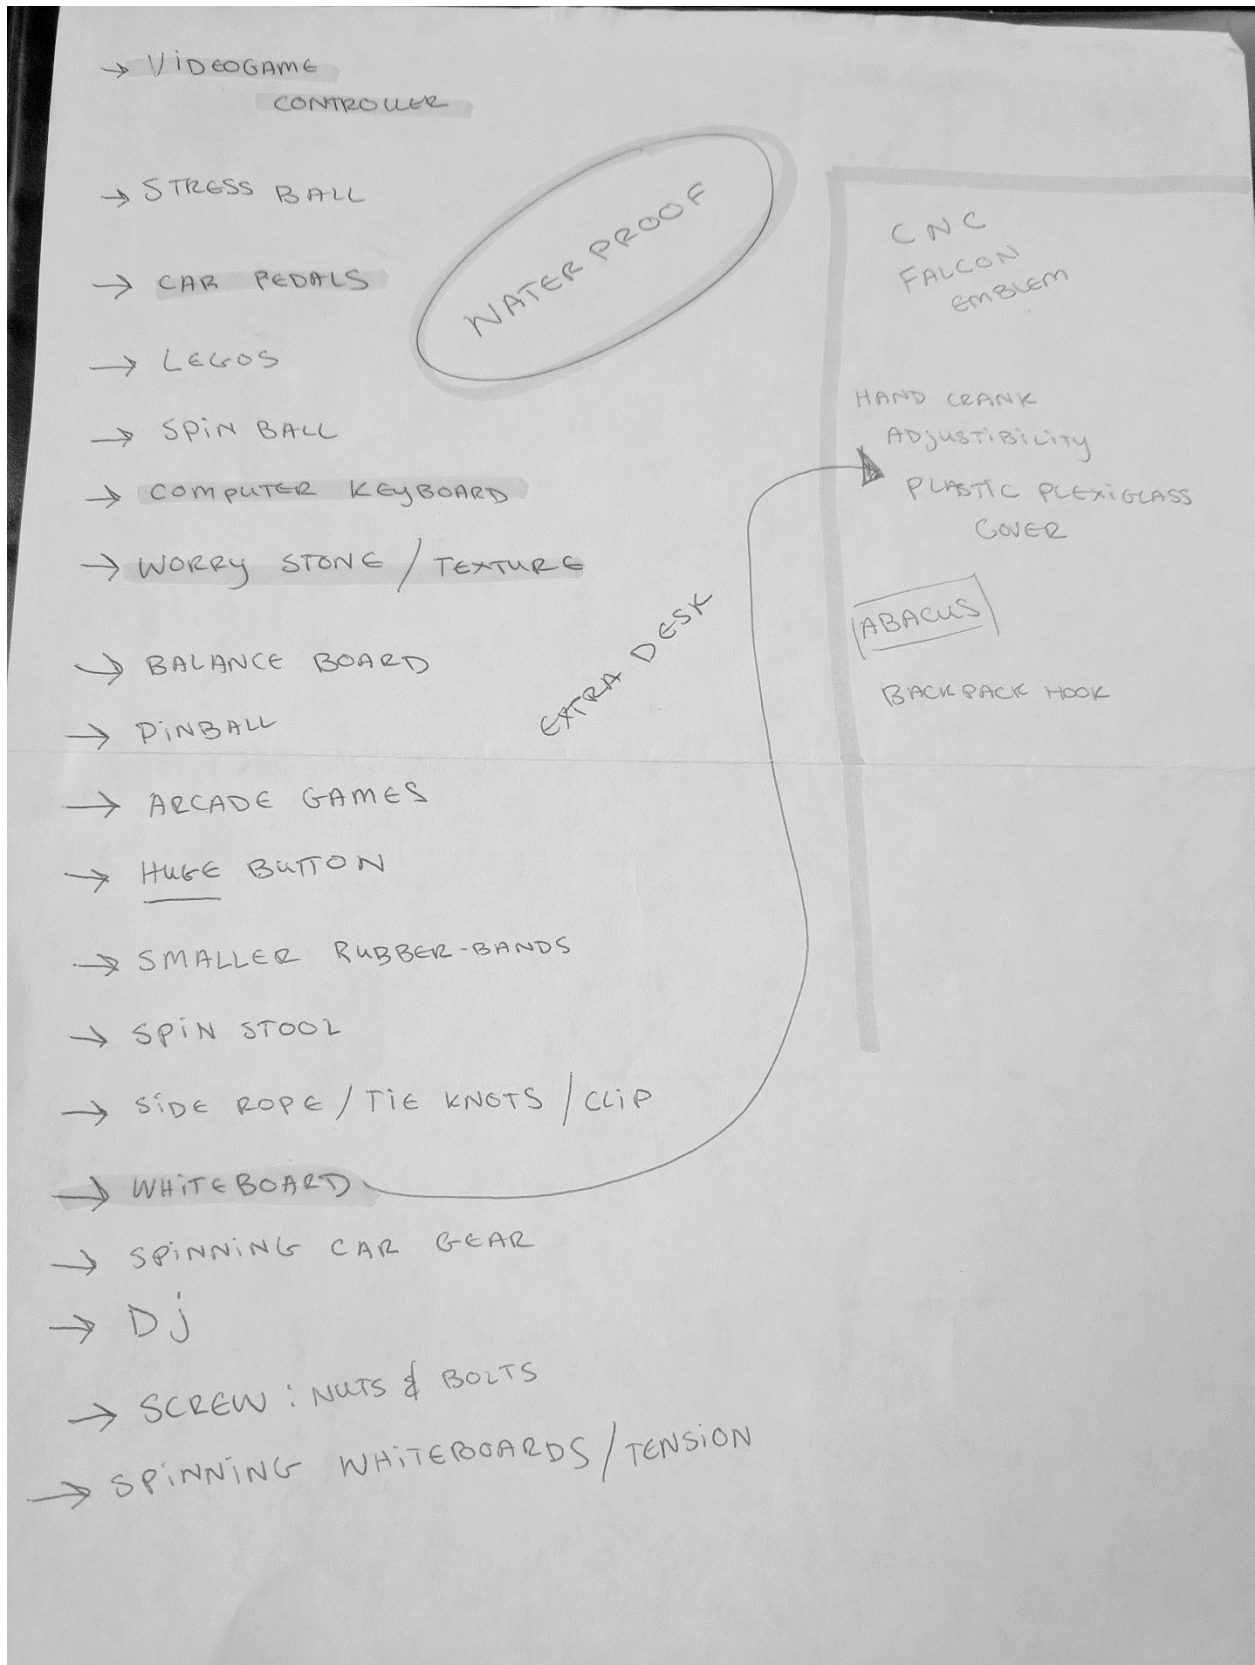 → ViDEOGAME
CONTROLLER
→ STRESS BALL
→ CAR PEDALS
→ LEGOS
→ SPiN BALL
→ COMPUTER KEyBOARD
→ WORRy STONE / TEXTURE
→ BALANCE BOARD
→ PiNBALL
→ ARCADE GAMES
→ HUGE BUTTON
→ SMALLER RUBBER-BANDS
→ SPiN STOOL
→ SiDE ROPE / TiE KNOTS / CLiP
→ WHiTEBOARD
→ SPiNNiNG CAR GEAR
→ Dj
→ SCREW : NUTS & BOLTS
→ SPiNNiNG WHiTEBOARDS / TENSiON
WATER PROOF
EXTRA DESK
CNC
FALCON
EMBLEM
HAND CRANK
ADjUSTiBiLiTy
PLASTiC PLEXiGLASS
COVER
ABACUS
BACKPACK HOOK